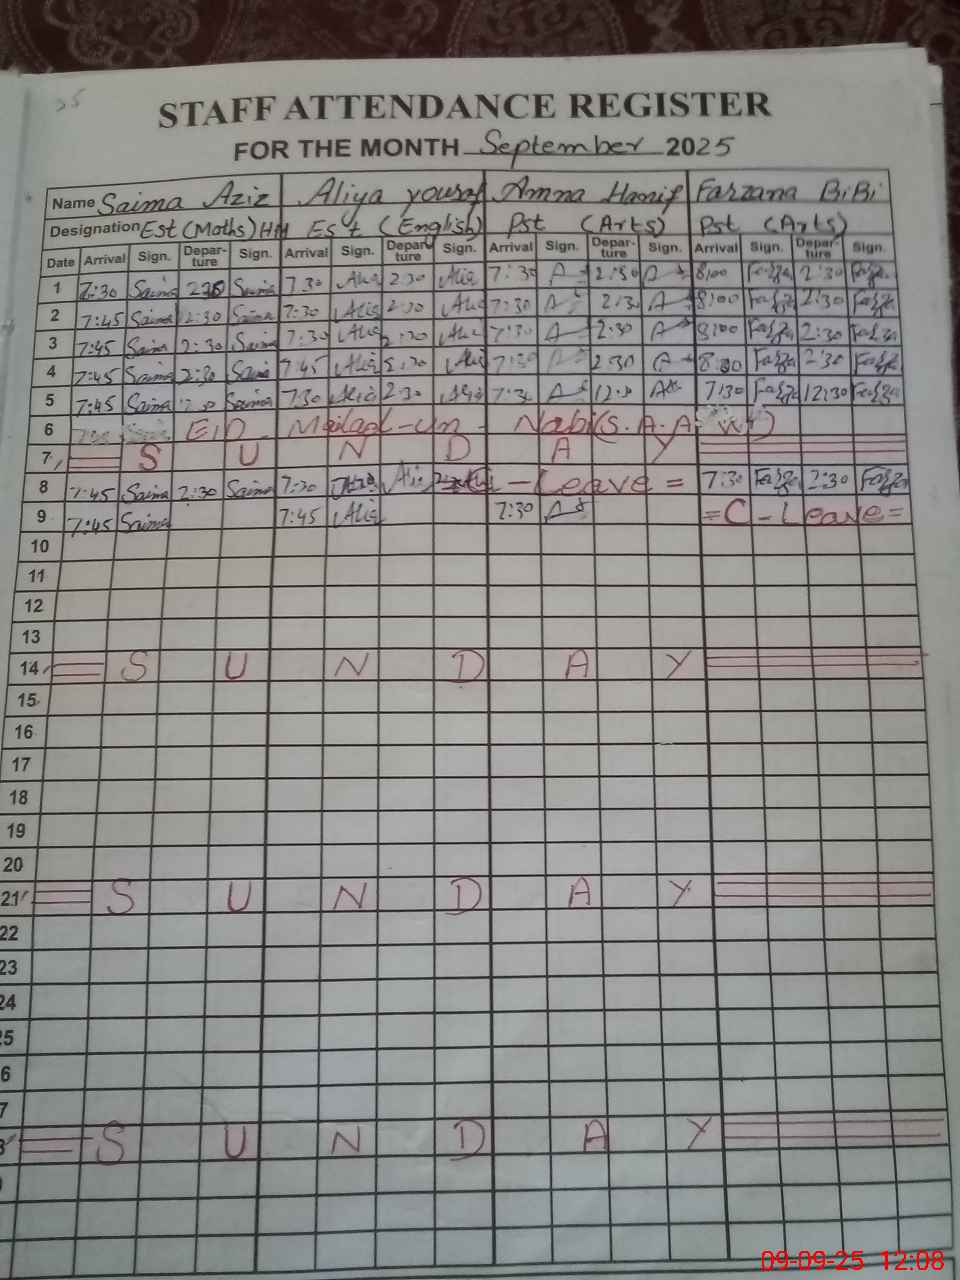 25
STAFF ATTENDANCE REGISTER
FOR THE MONTH September 2025
Name Saima Aziz Aliya yousaf Amna Hanif Farzana BiBi
Designation Est (Maths) HM Est (English) Pst (Arts) Pst (Arts)
Date Arrival Sign. Depar-ture Sign. Arrival Sign. Depar-ture Sign. Arrival Sign. Depar-ture Sign. Arrival Sign. Depar-ture Sign.
1 7:30 Saima 2:30 Saima 7:30 Alia 2:30 Alia 7:30 A 2:30 A 8:00 2:30
2 7:45 Saima 2:30 Saima 7:30 Alia 2:30 Alia 7:30 A 2:30 A 8:00 2:30
3 7:45 Saima 2:30 Saima 7:30 Alia 2:30 Alia 7:30 2:30 A 8:00 2:30
4 7:45 Saima 2:30 Saima 7:45 Alia 2:30 Alia 7:30 2:30 A 8:00 2:30
5 7:45 Saima Saima 7:30 Alia 2:30 Alia 7:30 A A 7:30 12:30
6 EID Meilad-un-Nabi (S.A.A.W)
7 S U N D A Y
8 7:45 Saima 2:30 Saima 7:30 Alia Alia - Leave = 7:30 2:30
9 7:45 Saima 7:45 Alia 7:30 A = C - Leave =
10
11
12
13
14 S U N D A Y
15
16
17
18
19
20
21 S U N D A Y
22
23
24
5
6
7
S U N D A Y
09-09-25 12:08